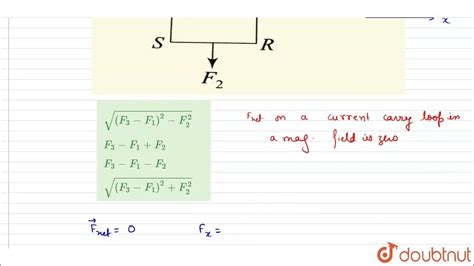 x
S R
F₂
√((F₃ − F₁)² − F₂²)
F₃ − F₁ + F₂
F₃ − F₁ − F₂
√((F₃ − F₁)² + F₂²)
Fnet on a current carry loop in
a mag. field is zero
F⃗net = 0 Fx =
doubtnut